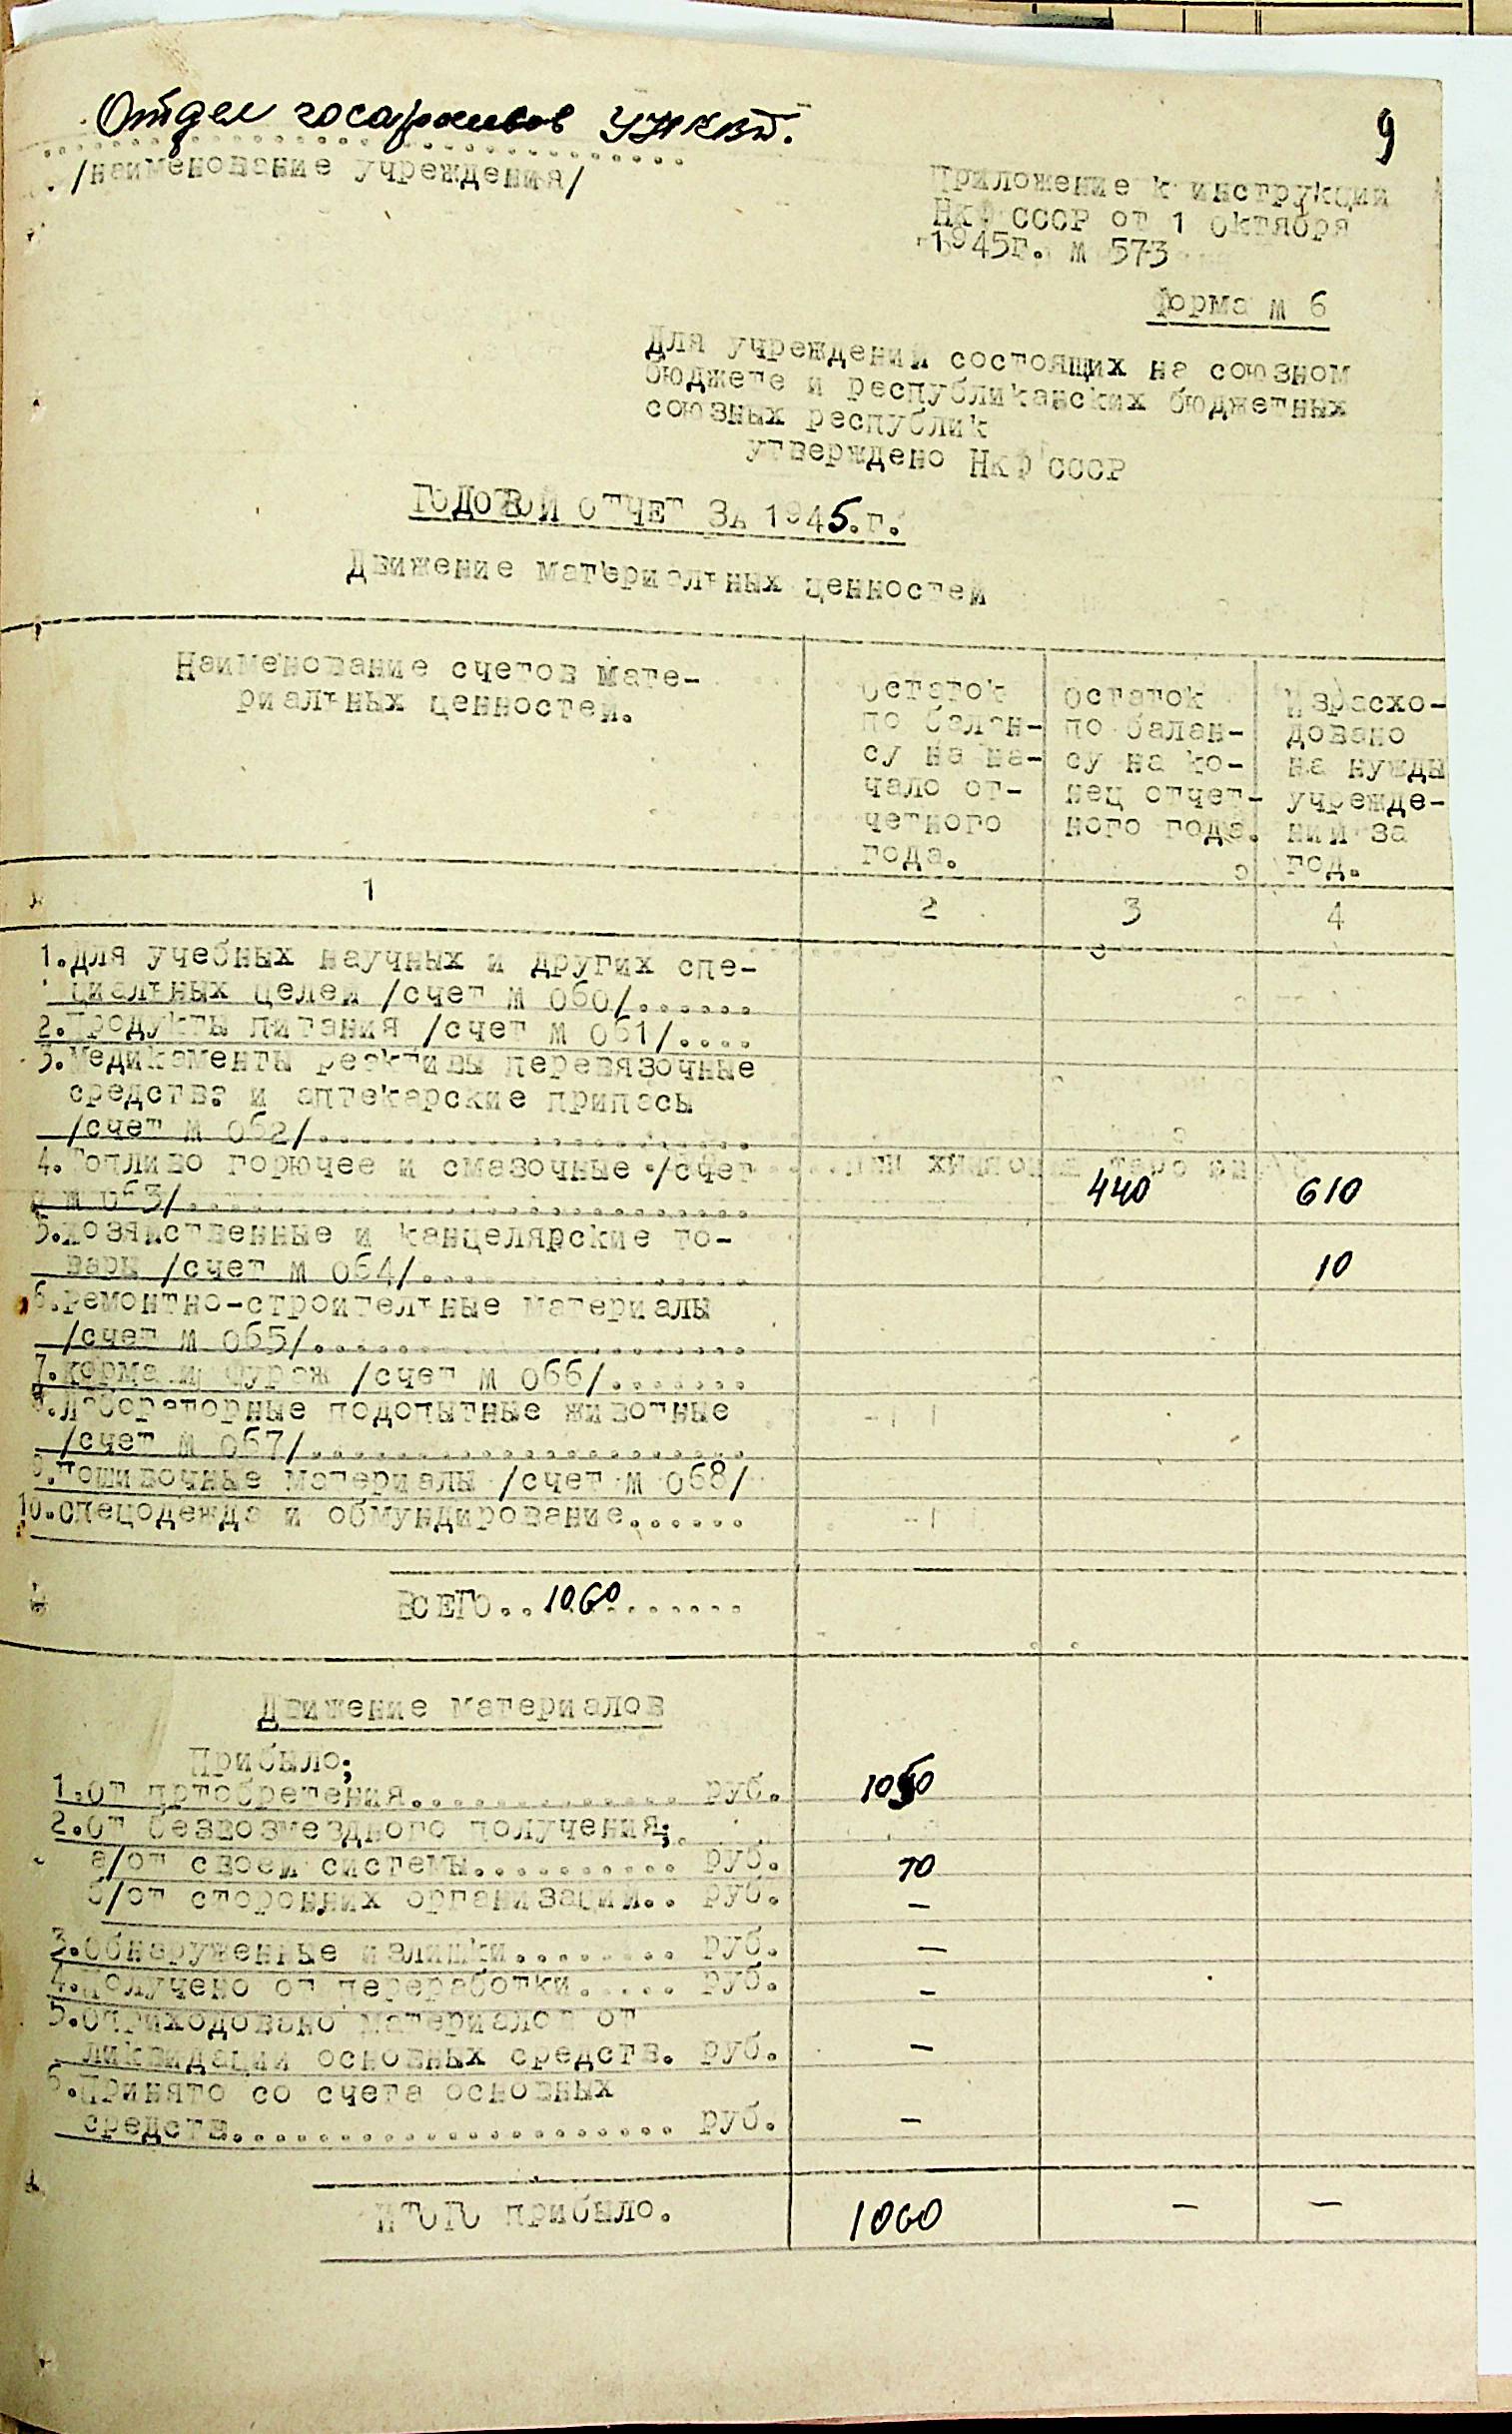 Отдел госархивов УНКВД.
9
/наименование учреждения/
Приложение к инструкции
НКФ СССР от 1 Октября
1945г. № 573
Форма № 6
Для учреждений состоящих на союзном
бюджете и республиканских бюджетных
союзных республик
утверждено НКФ СССР
ГОДОВОЙ ОТЧЕТ ЗА 1945.г.
Движение материальных ценностей
Наименование счетов мате-
риальных ценностей.
Остаток
по балан-
су на на-
чало от-
четного
года.
Остаток
по балан-
су на ко-
нец отчет-
ного года.
Израсхо-
довано
на нужды
учрежде-
ний за
год.
1 2 3 4
1.Для учебных научных и других спе-
циальных целей /счет № 060/......
2.Продукты питания /счет № 061/....
3.Медикаменты реактивы перевязочные
средства и аптекарские припасы
/счет № 062/....................
4.Топливо горючее и смазочные /счет
№ 063/.................... 440 610
5.Хозяйственные и канцелярские то-
вары /счет № 064/................ 10
6.Ремонтно-строительные материалы
/счет № 065/....................
7.Корма и фураж /счет № 066/.......
8.Лабораторные подопытные животные
/счет № 067/.....................
9.Пошивочные материалы /счет № 068/
10.Спецодежда и обмундирование......
ВСЕГО..1060........
Движение материалов
Прибыло;
1.От пртобретения.............. руб. 1050
2.От безвозмездного получения;
а/от своей системы.......... руб. 10
б/от сторонних организаций.. руб. –
3.Обнаруженные излишки........ руб. –
4.Получено от переработки..... руб. –
5.Оприходовано материалов от
ликвидации основных средств. руб. –
6.Принято со счета основных
средств..................... руб. –
ИТОГО прибыло. 1060 – –